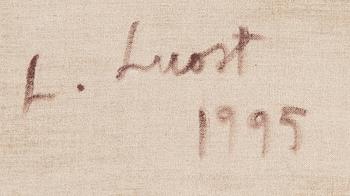 L. Luost
1995